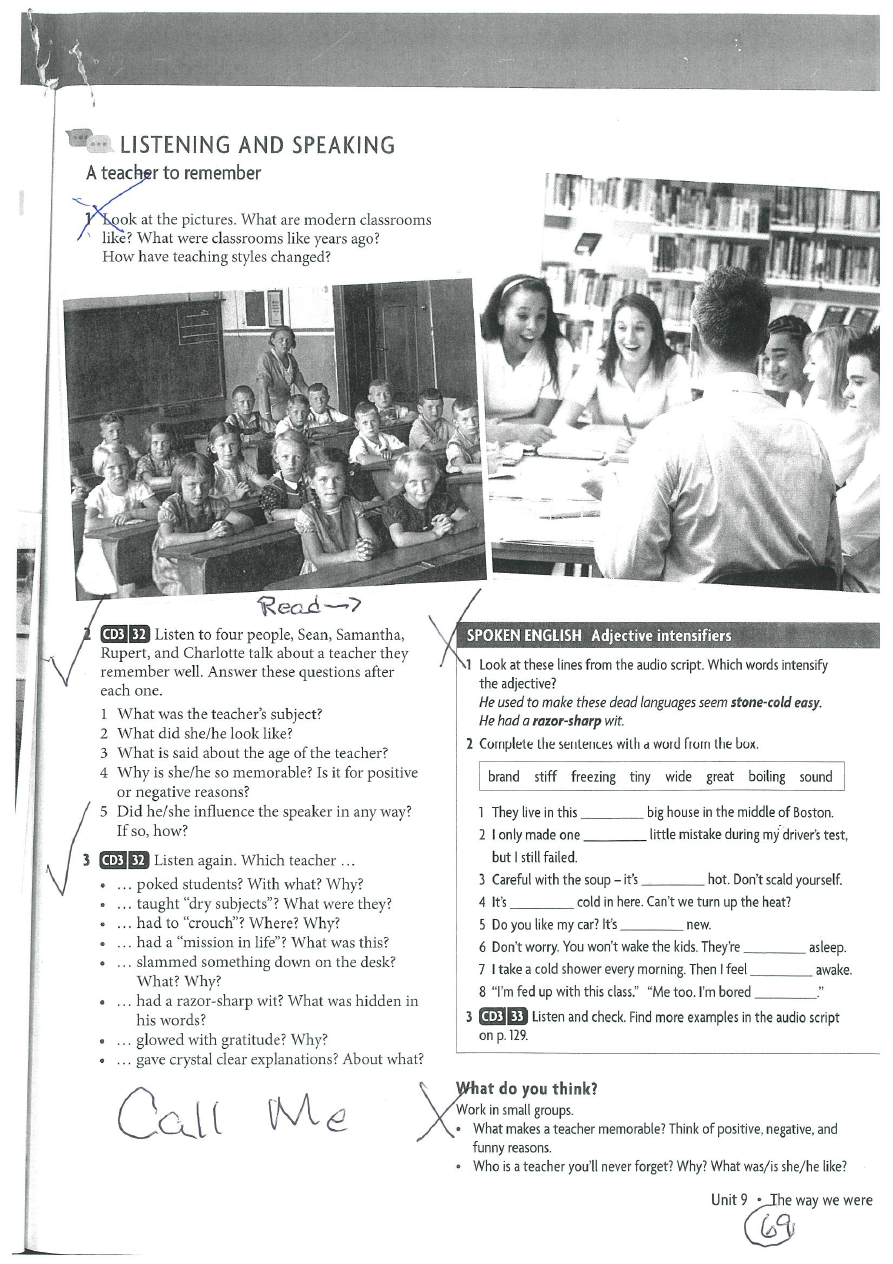 LISTENING AND SPEAKING
A teacher to remember
1 Look at the pictures. What are modern classrooms
like? What were classrooms like years ago?
How have teaching styles changed?
Read →
2 CD3 32 Listen to four people, Sean, Samantha,
Rupert, and Charlotte talk about a teacher they
remember well. Answer these questions after
each one.
1 What was the teacher's subject?
2 What did she/he look like?
3 What is said about the age of the teacher?
4 Why is she/he so memorable? Is it for positive
or negative reasons?
5 Did he/she influence the speaker in any way?
If so, how?
3 CD3 32 Listen again. Which teacher …
• … poked students? With what? Why?
• … taught "dry subjects"? What were they?
• … had to "crouch"? Where? Why?
• … had a "mission in life"? What was this?
• … slammed something down on the desk?
What? Why?
• … had a razor-sharp wit? What was hidden in
his words?
• … glowed with gratitude? Why?
• … gave crystal clear explanations? About what?
Call Me
SPOKEN ENGLISH Adjective intensifiers
1 Look at these lines from the audio script. Which words intensify
the adjective?
He used to make these dead languages seem stone-cold easy.
He had a razor-sharp wit.
2 Complete the sentences with a word from the box.
brand stiff freezing tiny wide great boiling sound
1 They live in this ________ big house in the middle of Boston.
2 I only made one ________ little mistake during my driver's test,
but I still failed.
3 Careful with the soup – it's ________ hot. Don't scald yourself.
4 It's ________ cold in here. Can't we turn up the heat?
5 Do you like my car? It's ________ new.
6 Don't worry. You won't wake the kids. They're ________ asleep.
7 I take a cold shower every morning. Then I feel ________ awake.
8 "I'm fed up with this class." "Me too. I'm bored ________."
3 CD3 33 Listen and check. Find more examples in the audio script
on p. 129.
What do you think?
Work in small groups.
• What makes a teacher memorable? Think of positive, negative, and
funny reasons.
• Who is a teacher you'll never forget? Why? What was/is she/he like?
Unit 9 • The way we were
69